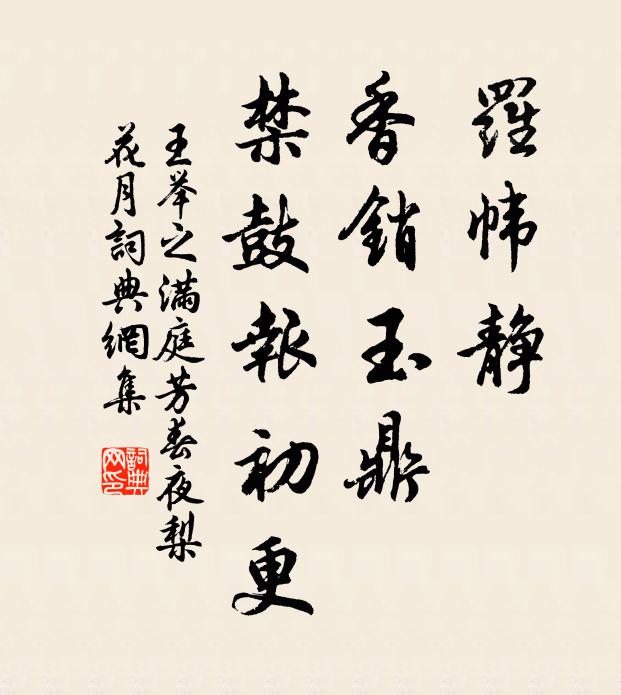 羅帏静
香銷玉鼎
禁鼓報初更
王举之满庭芳春夜梨
花月詞典網集
詞典
网印